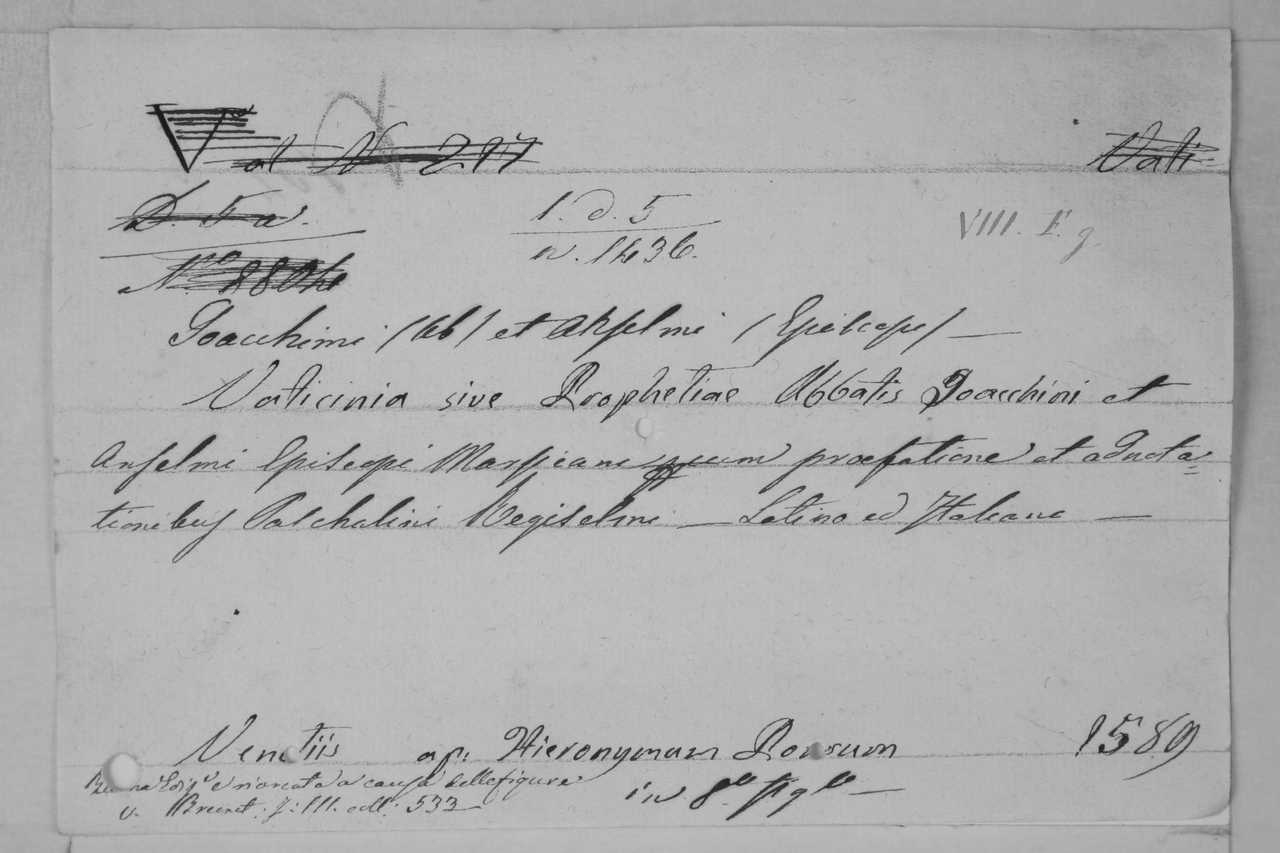 V al N 217
Vati
D. 5 a.
1. d. 5
VIII. F. g.
N.o 8804
n. 1436.
Joacchimi (Ab) et Anselmi (Episcopi) —
Vaticinia sive Prophetiae Abbatis Joacchini et
Anselmi Episcopi Marsicani cum praefatione et adnota=
tionibus Paschalini Regiselmi — Latino ed Italiano —
Venetiis ap. Hieronymum Porrum 1589
Buona Ediz.e ricercata a causa delle figure
in 8.o fig.to —
v. Brunet. T. III. coll. 533